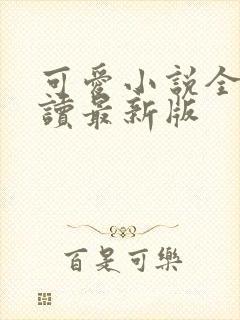 可愛小説全
讀最新版
百是可樂